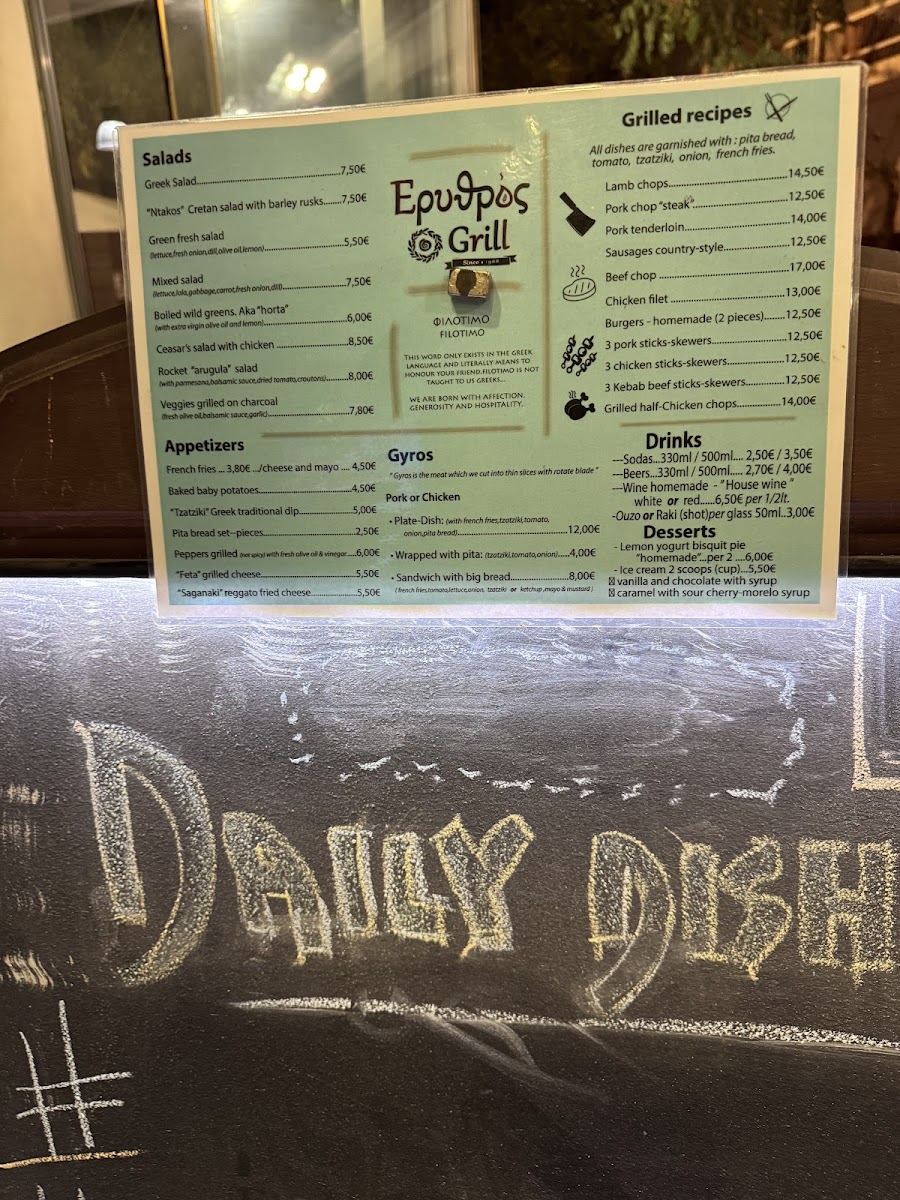 Salads
Greek Salad...7,50€
"Ntakos" Cretan salad with barley rusks.......7,50€
Green fresh salad
(lettuce,fresh onion,dill,olive oil,lemon)...5,50€
Mixed salad
(lettuce,lola,gabbage,carrot,fresh onion,dill)...7,50€
Boiled wild greens. Aka "horta"
(with extra virgin olive oil and lemon)...6,00€
Ceasar's salad with chicken ...8,50€
Rocket "arugula" salad
(with parmesana,balsamic sauce,dried tomato,croutons)...8,00€
Veggies grilled on charcoal
(fresh olive oil,balsamic sauce,garlic)...7,80€
Appetizers
French fries ... 3,80€ .../cheese and mayo .... 4,50€
Baked baby potatoes...4,50€
"Tzatziki" Greek traditional dip...5,00€
Pita bread set--pieces...2,50€
Peppers grilled (not spicy) with fresh olive oil & vinegar.....6,00€
"Feta" grilled cheese...5,50€
"Saganaki" reggato fried cheese...5,50€
Ερυθρός
Grill
Since • 1988
ΦΙΛΟΤΙΜΟ
FILOTIMO
THIS WORD ONLY EXISTS IN THE GREEK
LANGUAGE AND LITERALLY MEANS TO
HONOUR YOUR FRIEND.FILOTIMO IS NOT
TAUGHT TO US GREEKS...
WE ARE BORN WITH AFFECTION,
GENEROSITY AND HOSPITALITY.
Gyros
" Gyros is the meat which we cut into thin slices with rotate blade "
Pork or Chicken
• Plate-Dish: (with french fries,tzatziki,tomato,
onion,pita bread)...12,00€
• Wrapped with pita: (tzatziki,tomato,onion).....4,00€
• Sandwich with big bread...8,00€
( french fries,tomato,lettuce,onion, tzatziki or ketchup ,mayo & mustard )
Grilled recipes
All dishes are garnished with : pita bread,
tomato, tzatziki, onion, french fries.
Lamb chops...14,50€
Pork chop "steak"...12,50€
Pork tenderloin...14,00€
Sausages country-style...12,50€
Beef chop ...17,00€
Chicken filet ...13,00€
Burgers - homemade (2 pieces).......12,50€
3 pork sticks-skewers...12,50€
3 chicken sticks-skewers...12,50€
3 Kebab beef sticks-skewers...12,50€
Grilled half-Chicken chops...14,00€
Drinks
---Sodas...330ml / 500ml.... 2,50€ / 3,50€
---Beers...330ml / 500ml..... 2,70€ / 4,00€
---Wine homemade - "House wine "
white or red......6,50€ per 1/2lt.
-Ouzo or Raki (shot)per glass 50ml..3,00€
Desserts
- Lemon yogurt bisquit pie
"homemade"...per 2 ....6,00€
- Ice cream 2 scoops (cup)...5,50€
vanilla and chocolate with syrup
caramel with sour cherry-morelo syrup
DAILY DISH
#